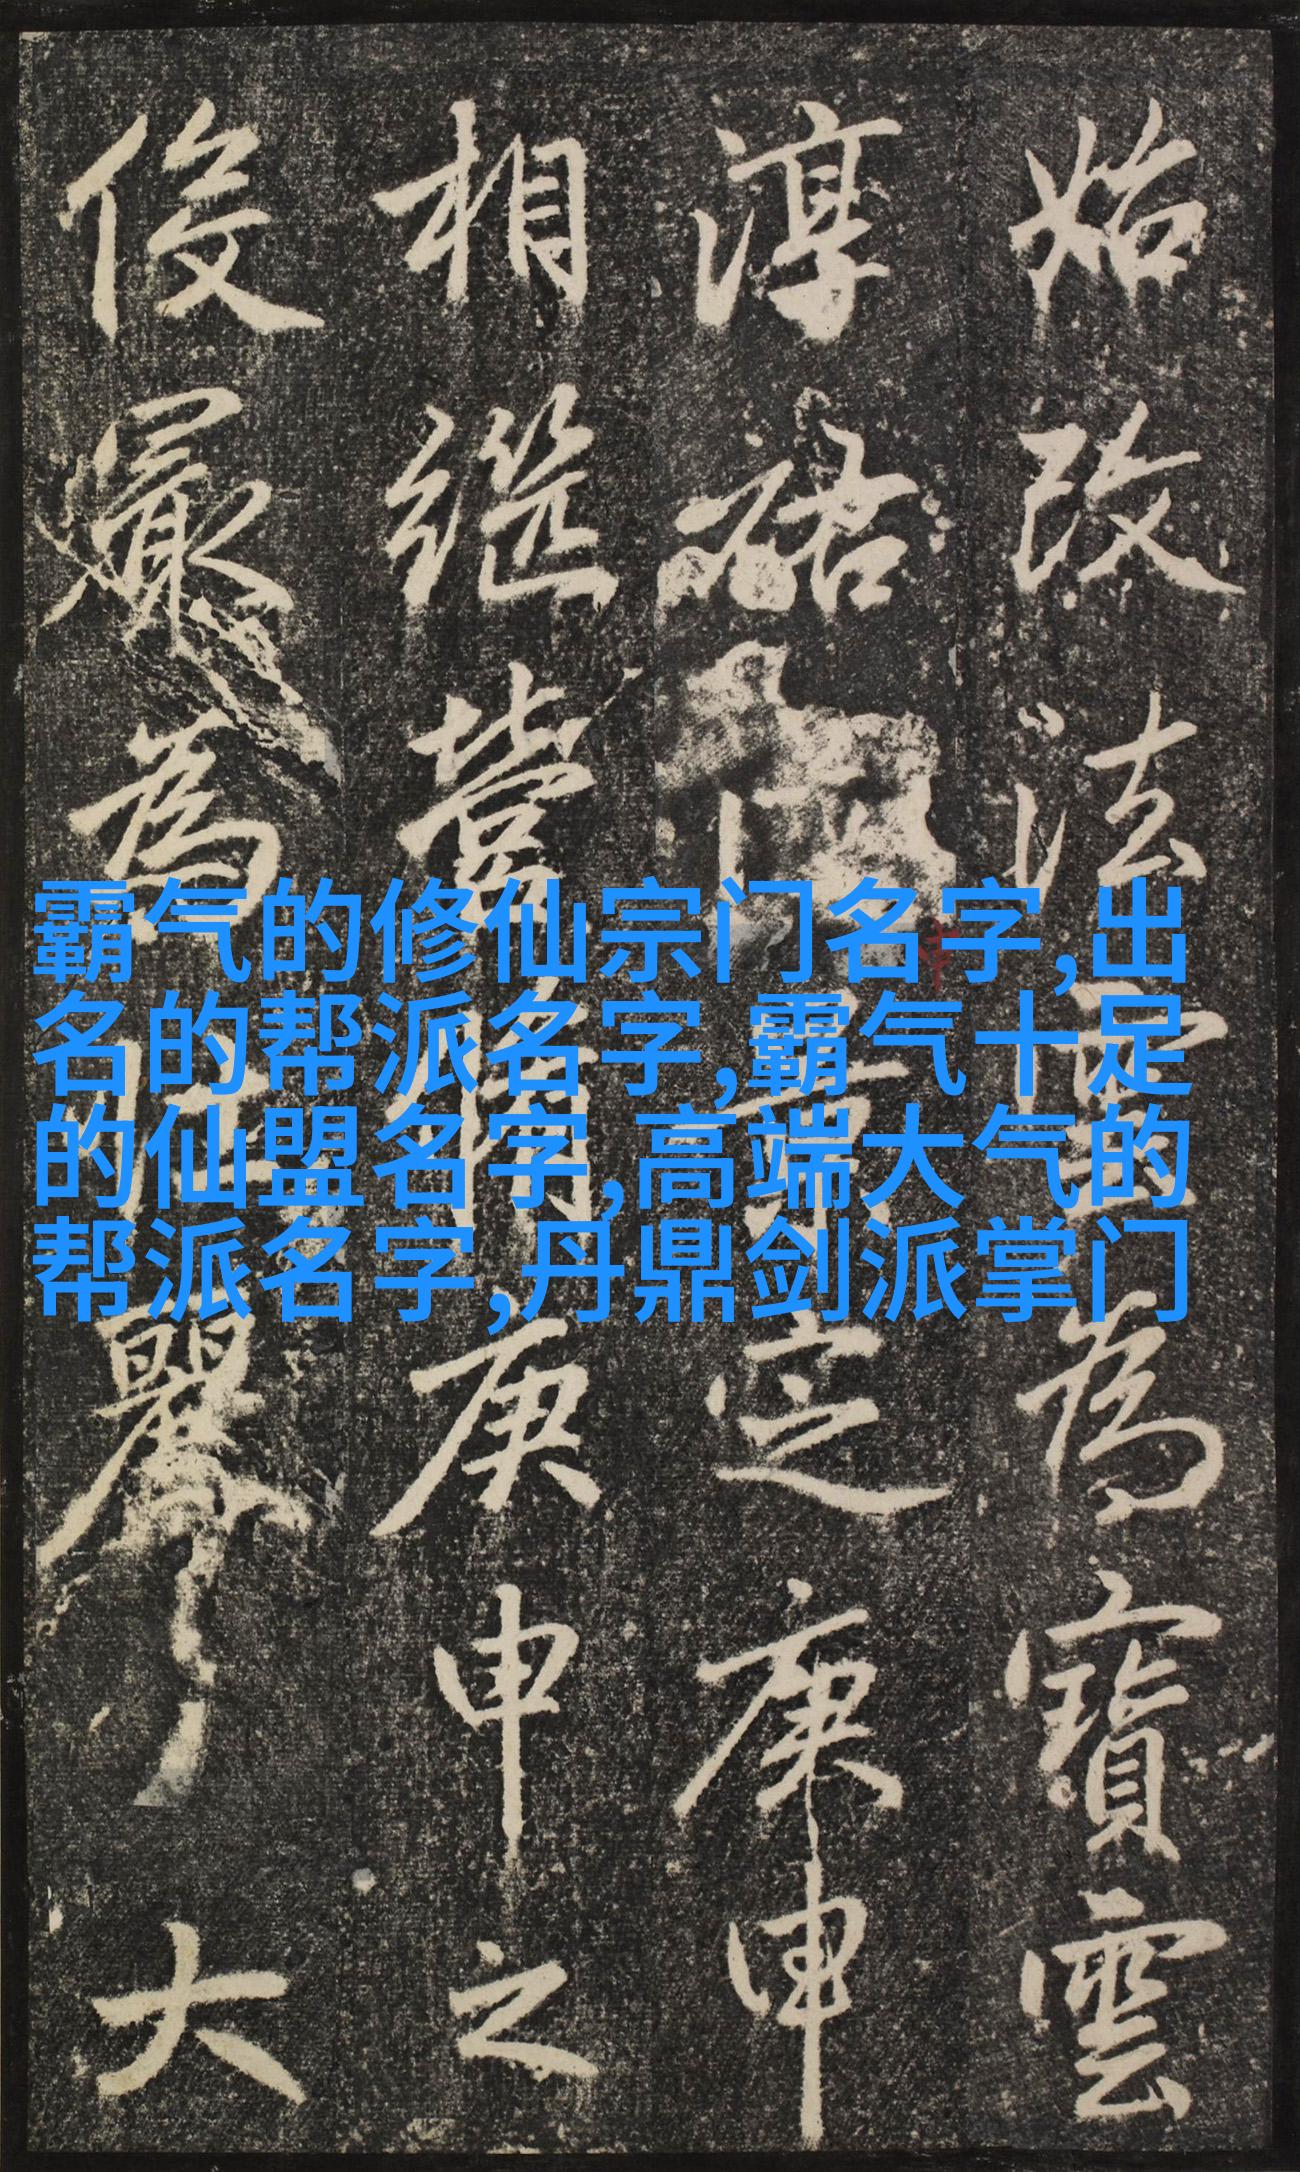 始改法為寶雲
淳祐景定庚申
相継營庚申之
俊為壯大
霸气的修仙宗门名字,出
名的帮派名字,霸气十足
的仙盟名字,高端大气的
帮派名字,丹鼎剑派掌门